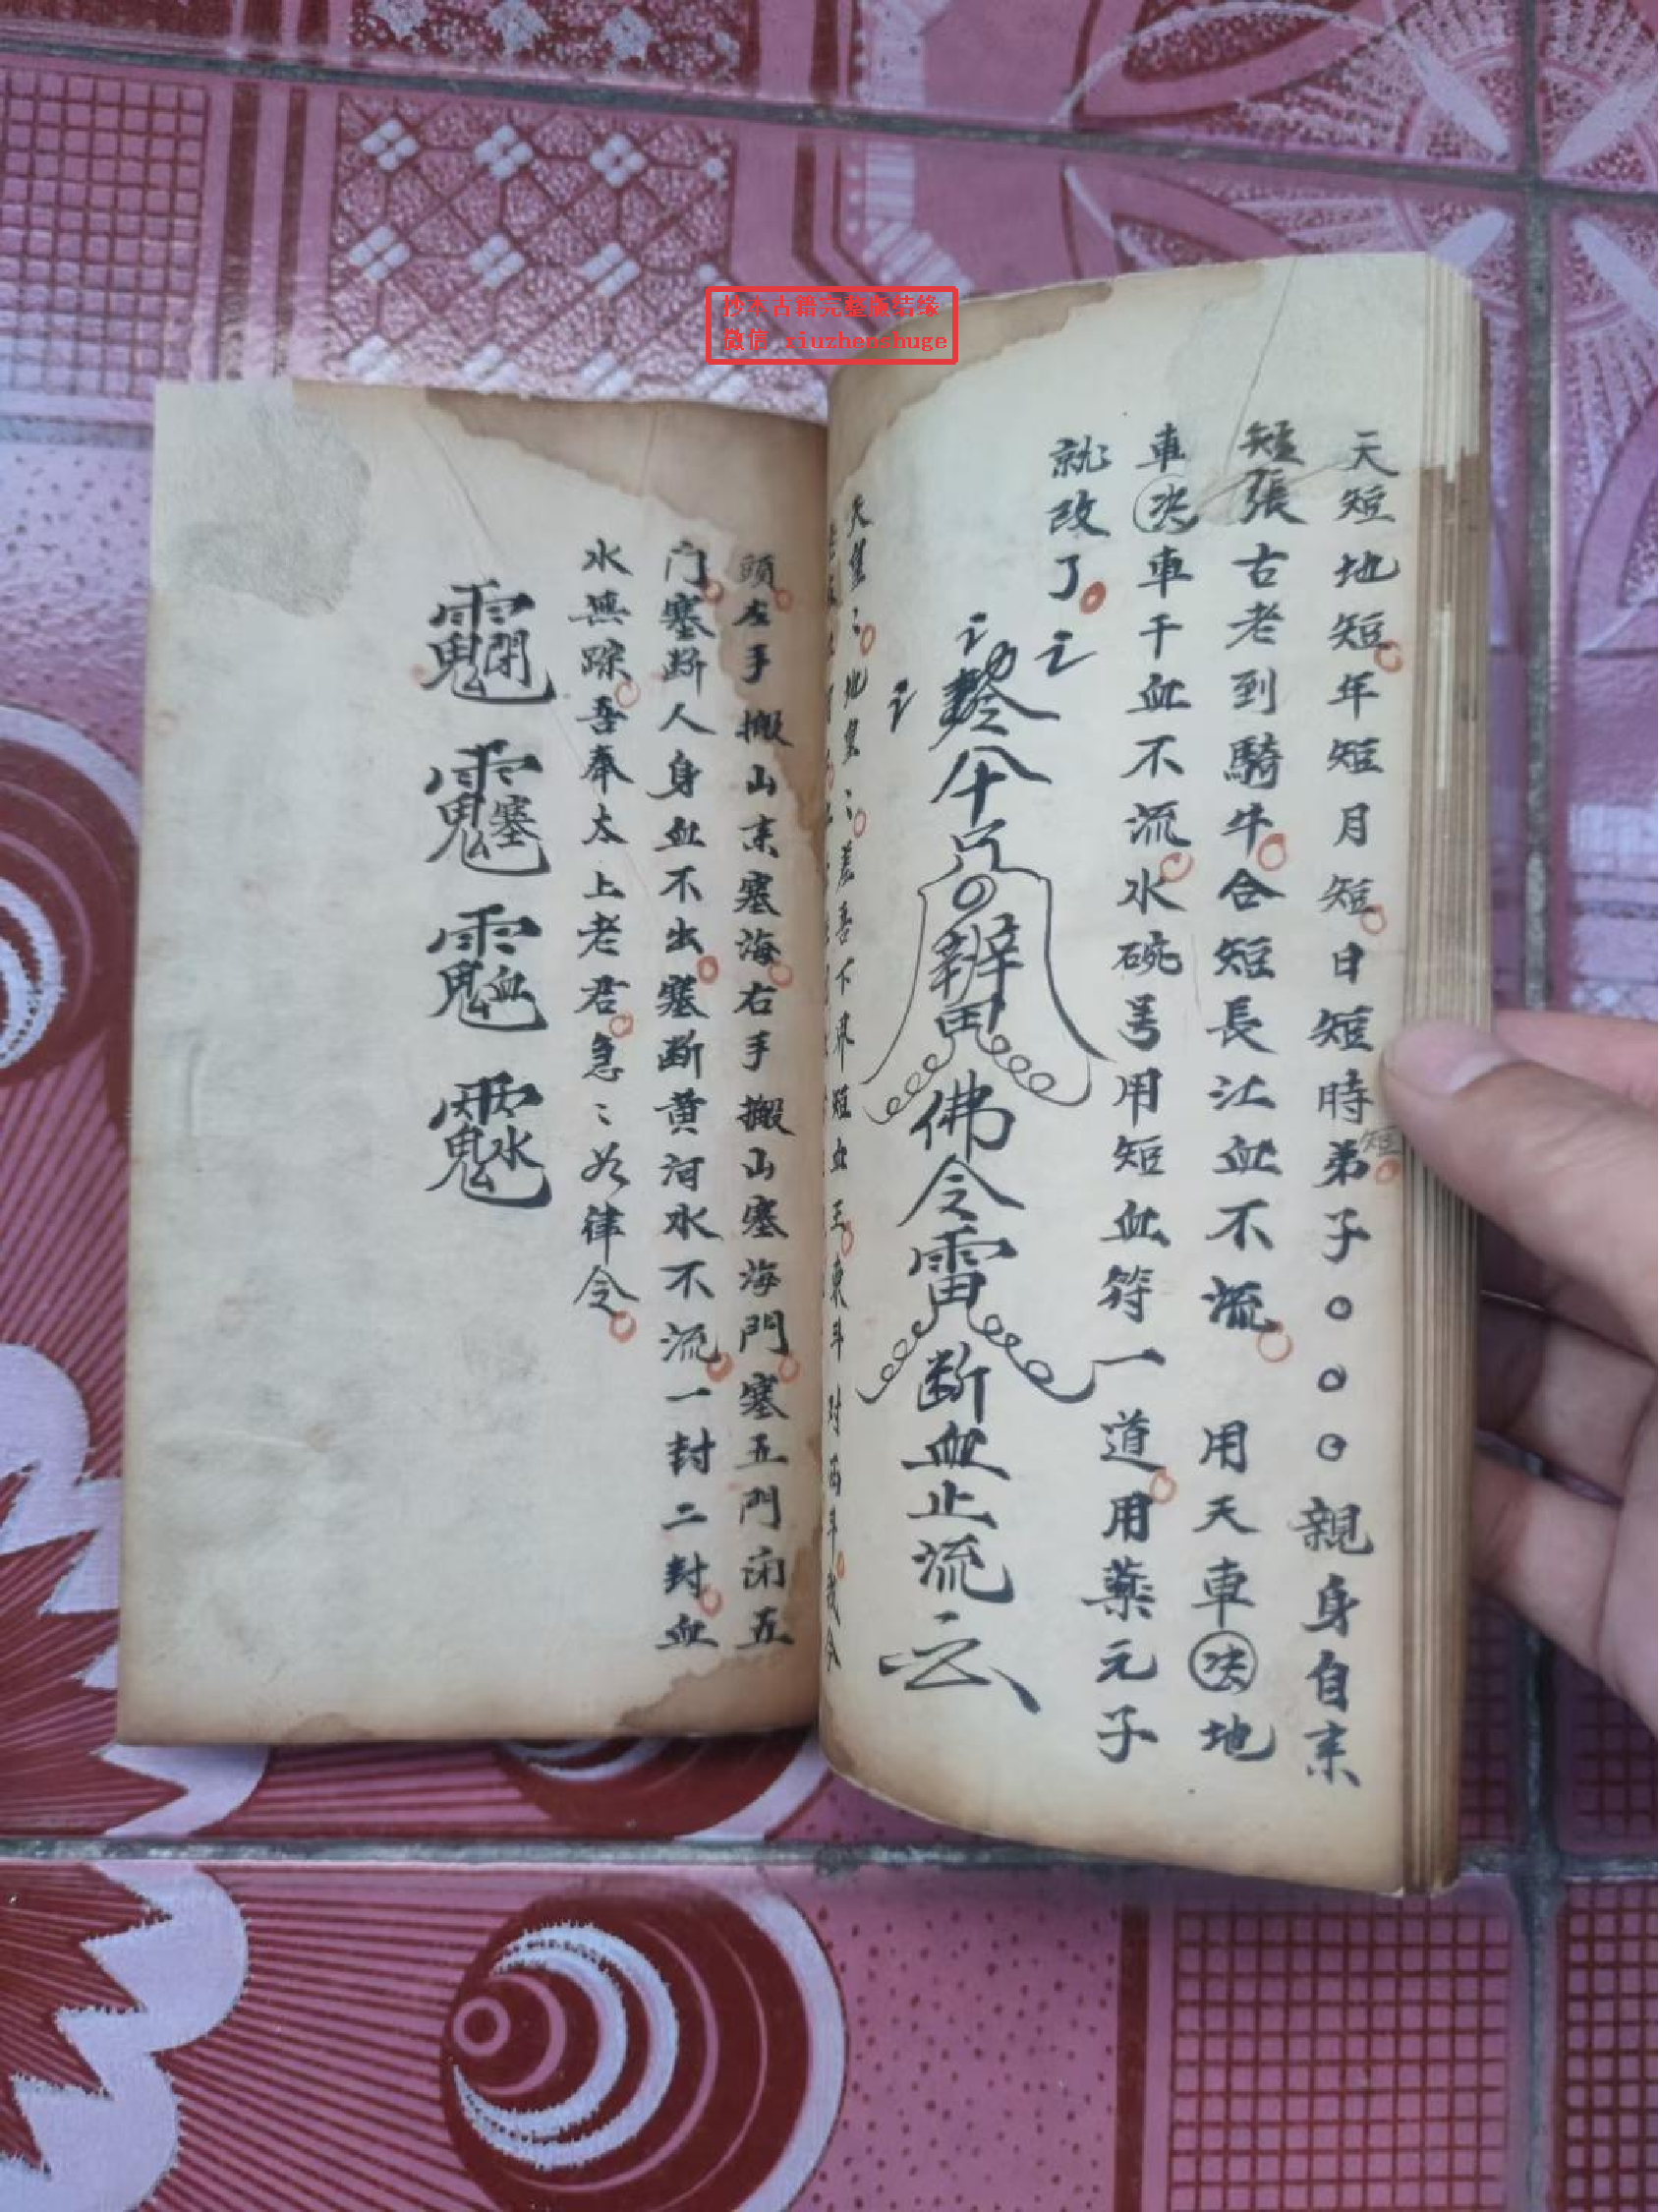 抄本古籍完整版结缘
微信 xiuzhenshuge
天短地短年短月短日短時短弟子○○○親身自来
短張古老到騎牛合短長江血不流 用天車决地
車决車千血不流水碗号用短血符一道用藥元子
就改了
佛令雷断血止流云
天皇〻地皇〻差吾下界短血王東斗对西斗
頭左手搬山来塞海右手搬山塞海門塞五門闭五
门塞断人身血不出塞断黄河水不流一封二封血
水無踪吾奉太上老君急〻如律令